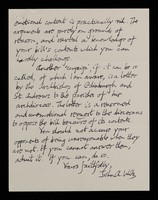 emotional content is practically nil. The
arguments are purely on grounds of
reason, and reveal a knowledge of
your bill's contents which you can
hardly challenge.
Another "campaign", if it can be so
called, of which I am aware, is a letter
by the Archbishop of Edinburgh and
St Andrews to the faithful of the
archdiocese. The letter is a reasoned
and unemotional request to the
to oppose the bill because of its contents.
You should not accuse your
opponents of being unreasonable when they
are not. If you cannot answer them,
admit it. If you can, do so.
Yours faithfully,
John A.